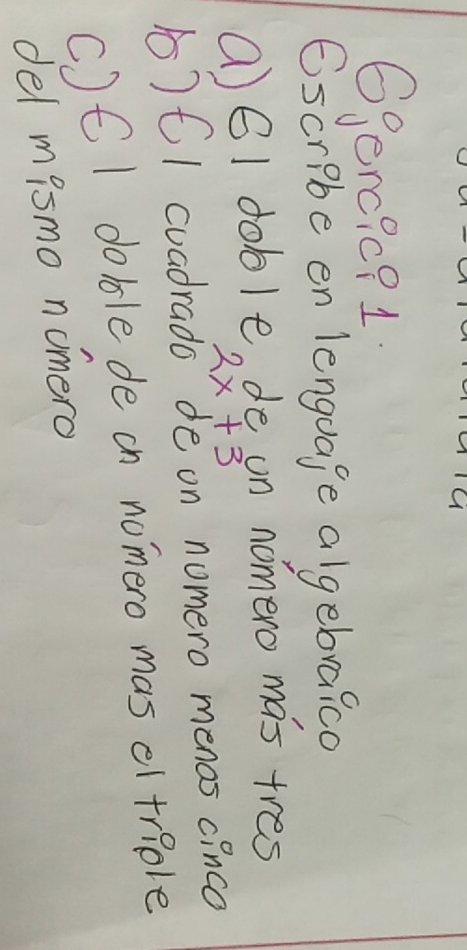 Ejercici 1.
Escribe en lenguaje algebraico
a) El doble de un número más tres
2x + 3
b) El cuadrado de un numero menos cinco
c) El doble de un número mas el triple
del mismo número